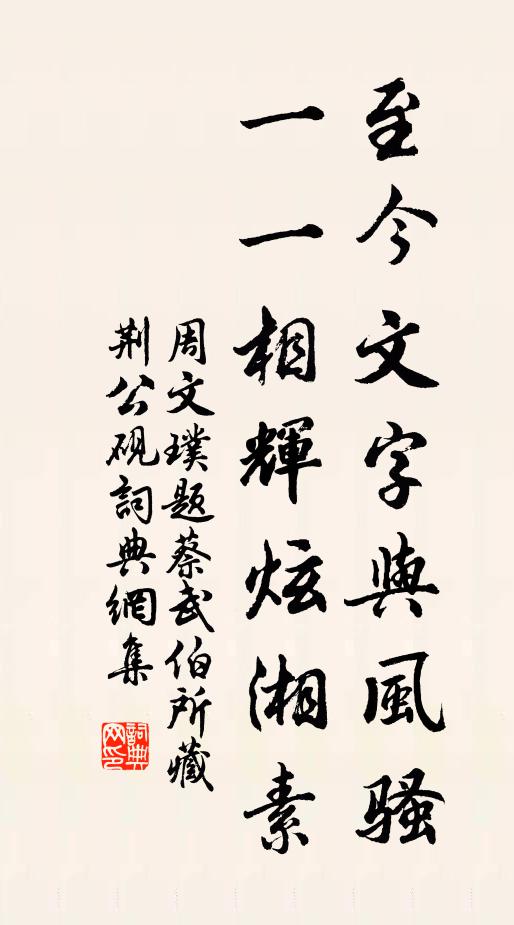 至今文字與風騷
一一相輝炫湘素
周文璞題蔡武伯所藏
荆公硯詞典網集
詞典
网印